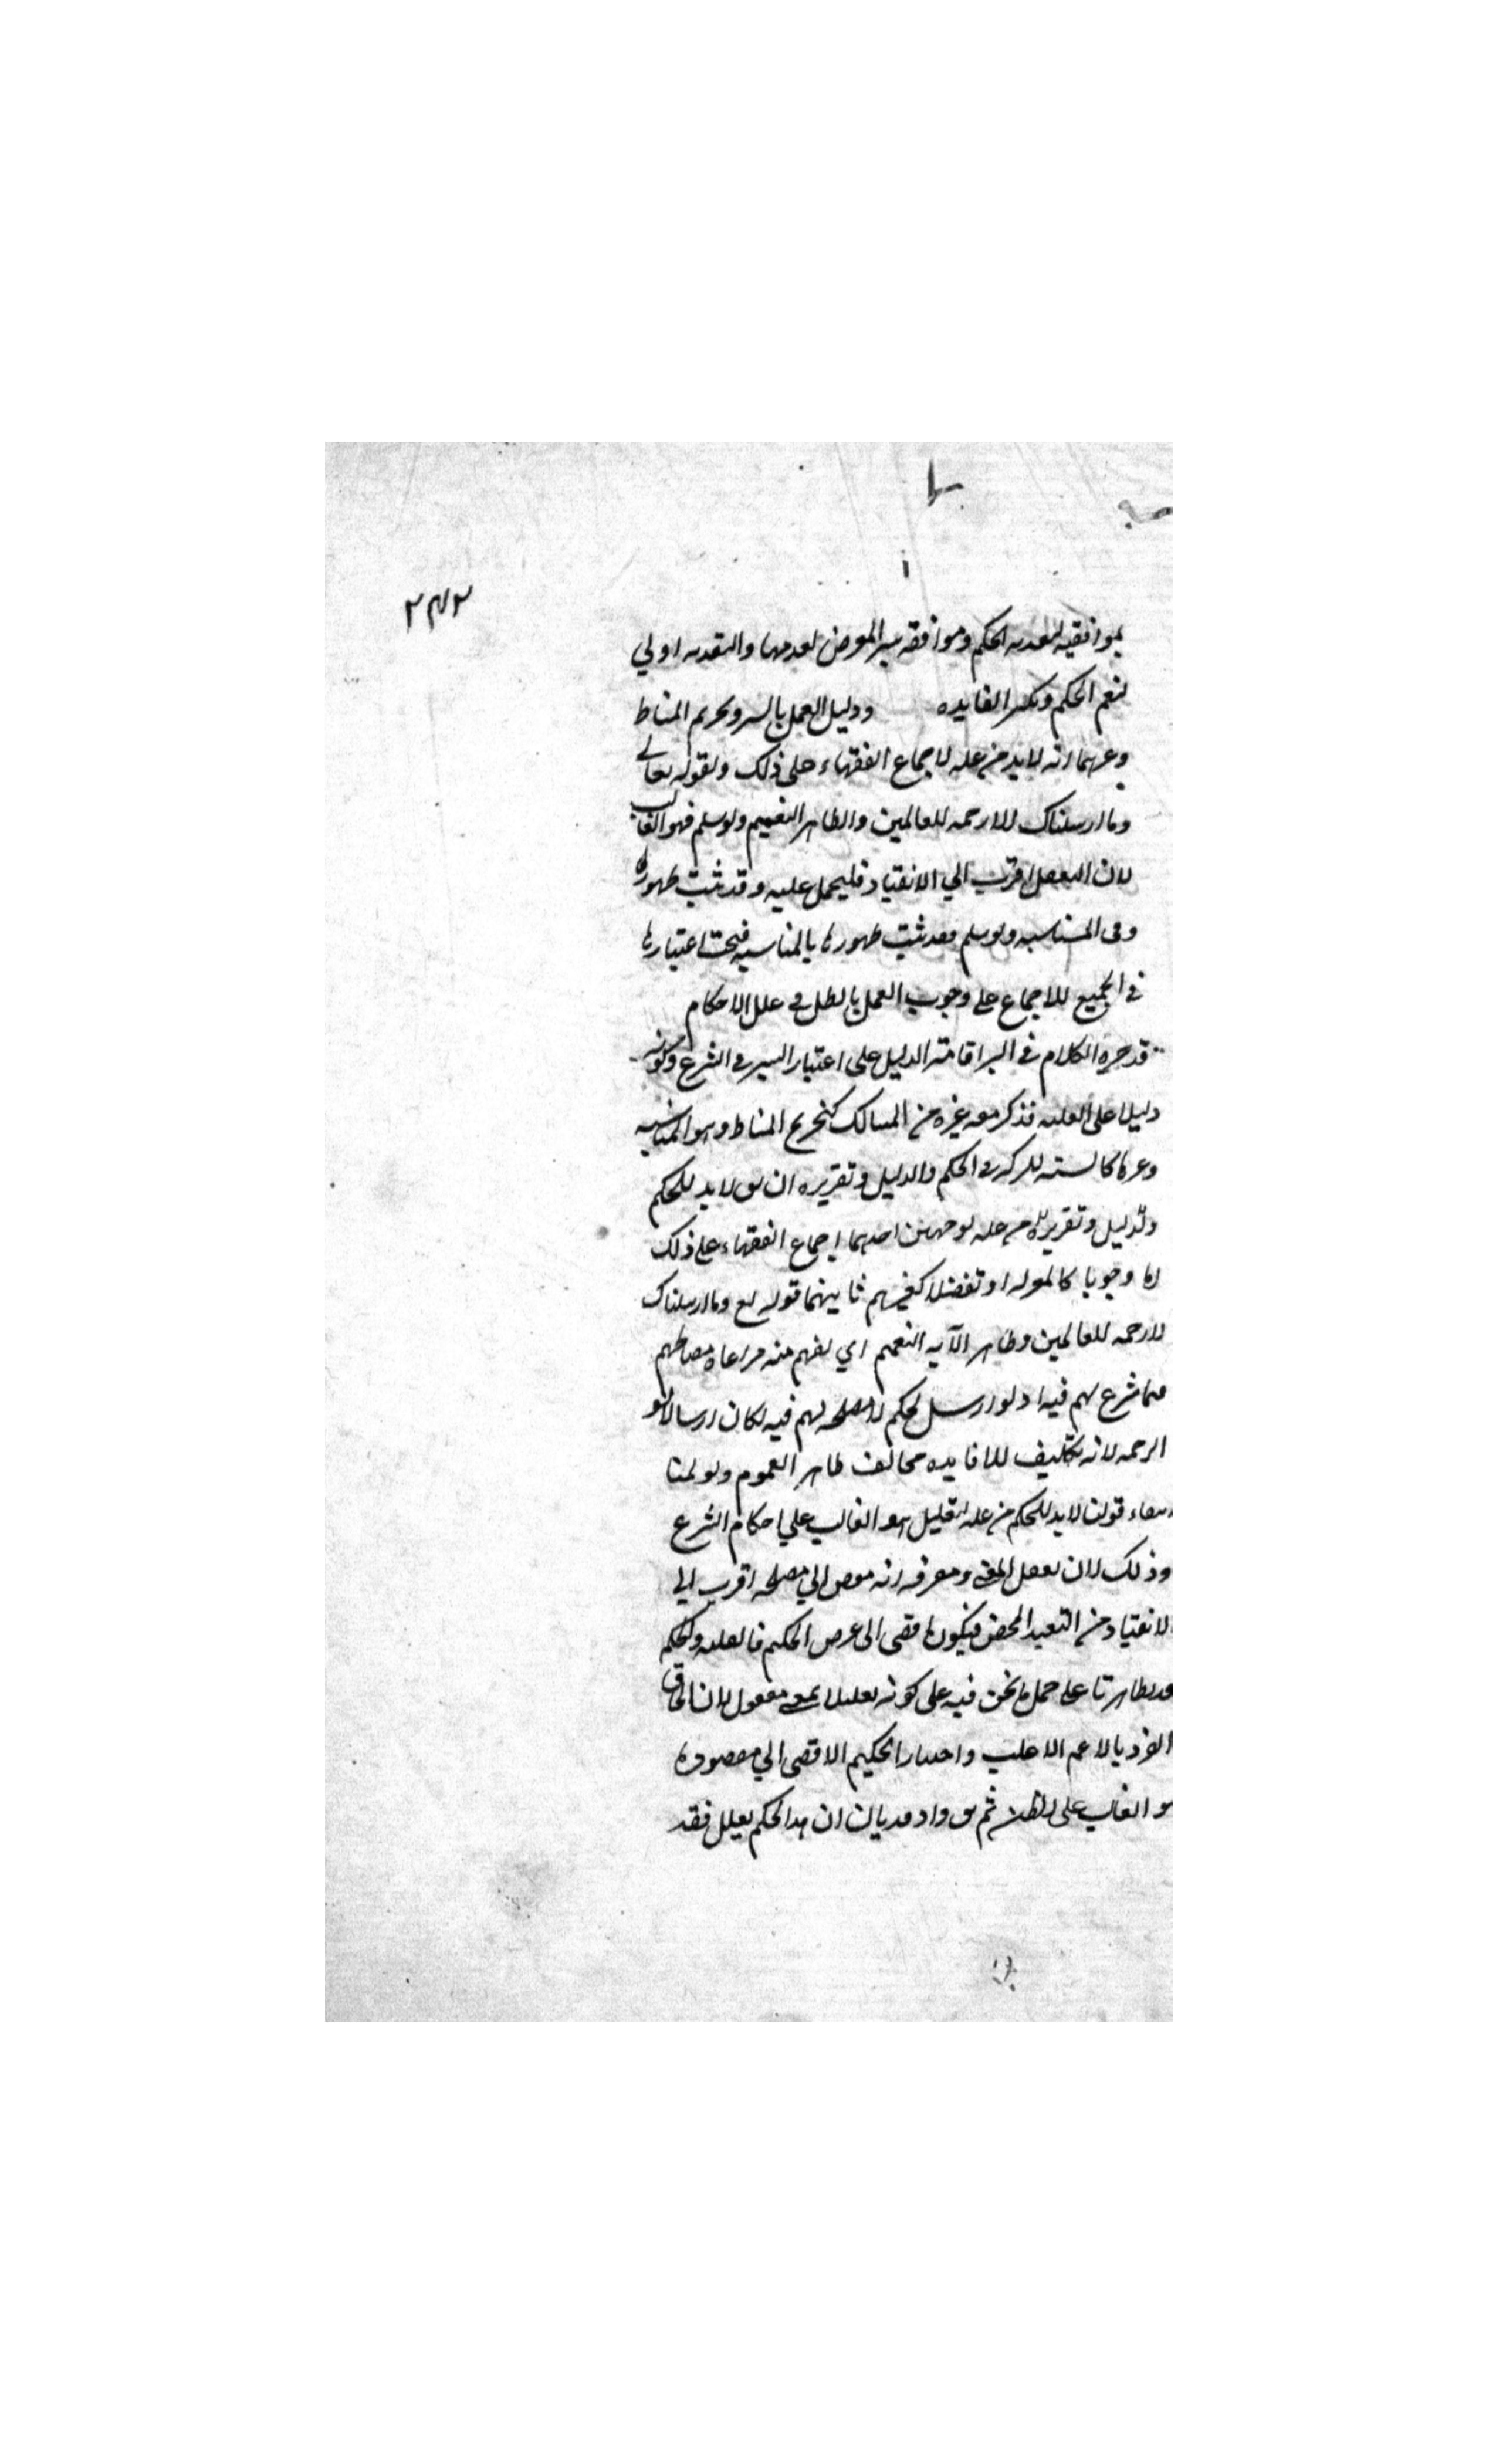 ٢٤٢
بموافقيه لتعديه الحكم وموافقه سبر المعترض لعدمها والتعديه اولي
لتعم الحكم وتكثير الفايده ودليل العمل بالسبر وتخريج المناط
وغيرهما انه لابد من علة لاجماع الفقهاء على ذلك ولقوله تعالى
وما ارسلناك الا رحمه للعالمين والظاهر التعميم ولو سلم فهو الغالب
لان التعقل اقرب الي الانقياد فليحمل عليه وقد ثبت ظهورها
وفي المناسبه ولو سلم فقد ثبت ظهورها بالمناسبه فيجب اعتبارها
في الجميع للاجماع على وجوب العمل بالظن في علل الاحكام
قد جره الكلام في السبر اقامة الدليل على اعتبار السبر في الشرع وكونه
دليلا على العلية فذكر معه غيره من المسالك كتخريج المناط وهو المناسبه
وغيرها كالشبه للشركه في الحكم والدليل وتقريره ان يق لابد للحكم
والدليل وتقريره من علة لوجهين احدهما اجماع الفقهاء على ذلك
اما وجوبا كالمعتزله او تفضلا كغيرهم ثانيهما قوله تع وما ارسلناك
الا رحمه للعالمين وظاهر الآيه التعميم اي يفهم منه مراعاة مصالحهم
فيما شرع لهم فيه اذ لو ارسل بحكم لا مصلحه لهم فيه لكان ارسالا لغير
الرحمه لانه تكليف بلا فايده مخالف ظاهر العموم ولو سلمنا
انتفاء قولنا لابد للحكم من علة التعليل هو الغالب علي احكام الشرع
وذلك لان تعقل المعنى ومعرفه انه مفض الي مصلحه اقرب الي
الانقياد من التعبد المحض فيكون افضى الى غرض الحكيم فالعليه والحكم
على حمل ما نحن فيه على كونه تعليلا بمعنى معقول لان الحاق
الفرد بالاعم الاغلب واختيار الحكيم الافضى الي مقصوده
هو الغالب على الظن ثم يق واذ قد بان ان هذا الحكم معلل فقد